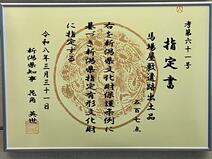 考第六十一号
指定書
馬場屋敷遺跡出土品
五百七点
右を新潟県文化財保護条例に
基づき新潟県指定有形文化財
に指定する
令和八年三月三十一日
新潟県知事 花角英世